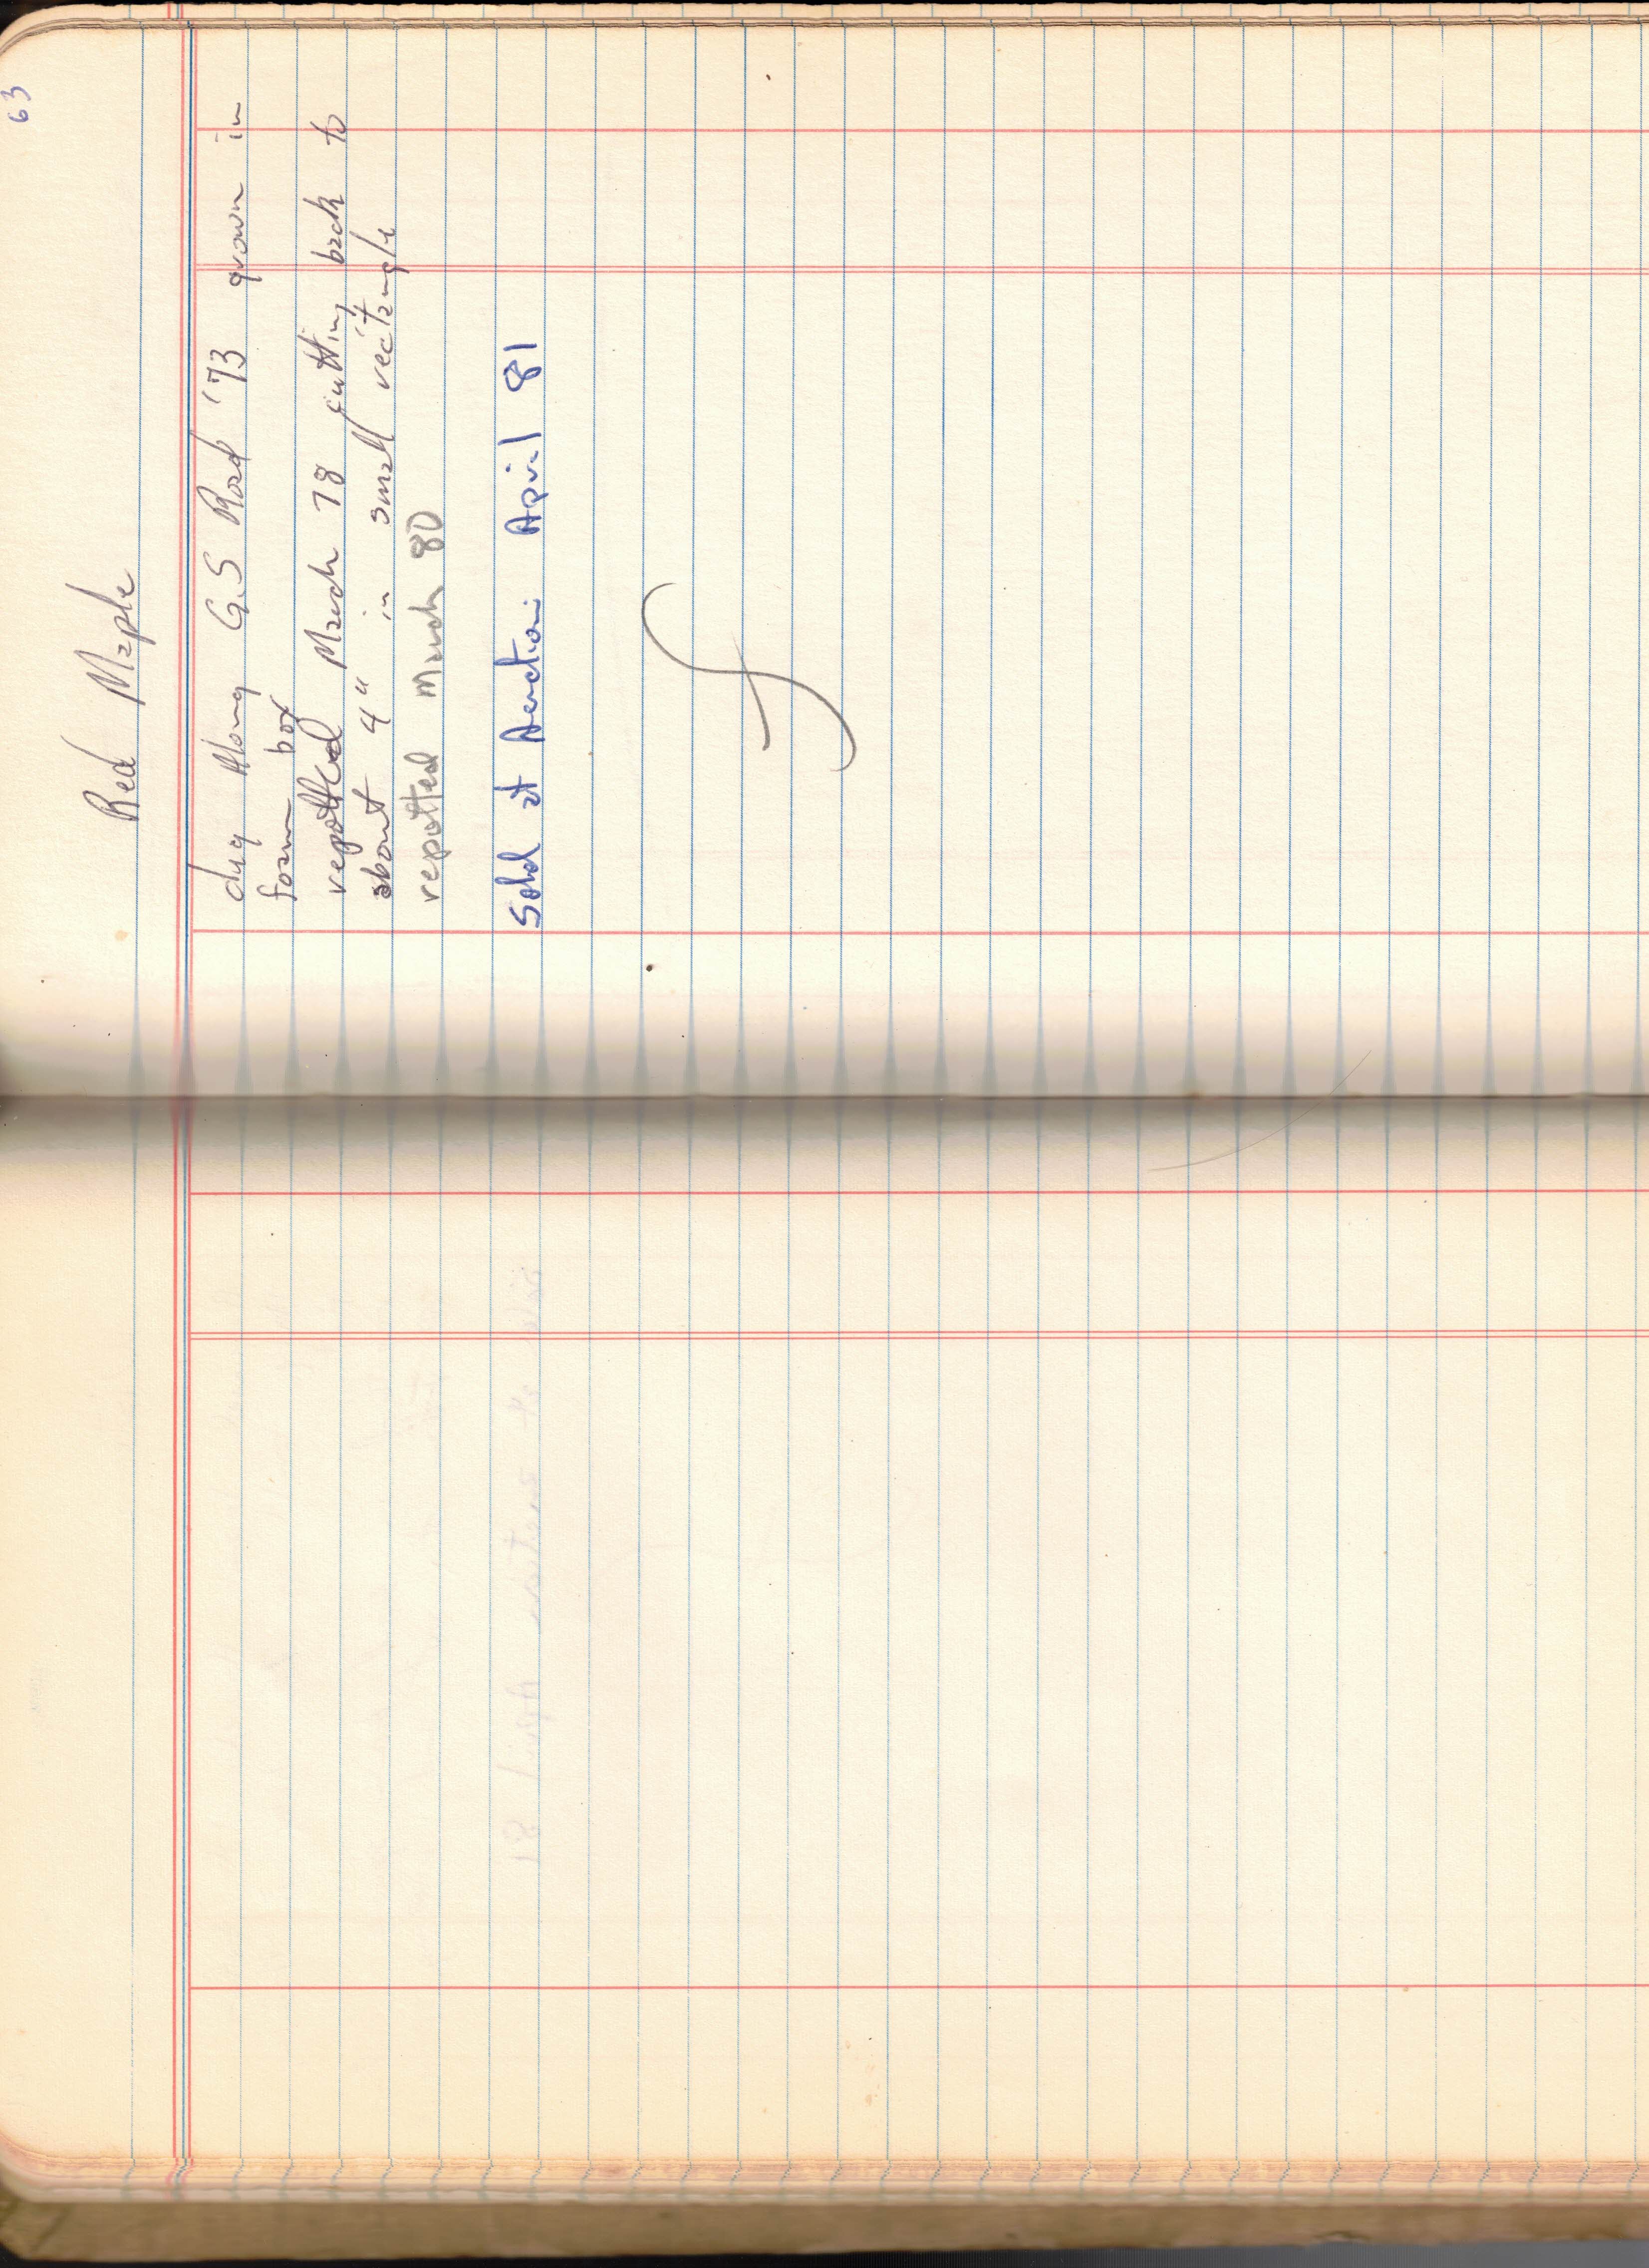 63
Red Maple
dug Along G.S Road '73 grown in
foam box
repotted March 78 cutting back to
about 4" in small rectangle
repotted March 80
Sold at Auction April 81
f